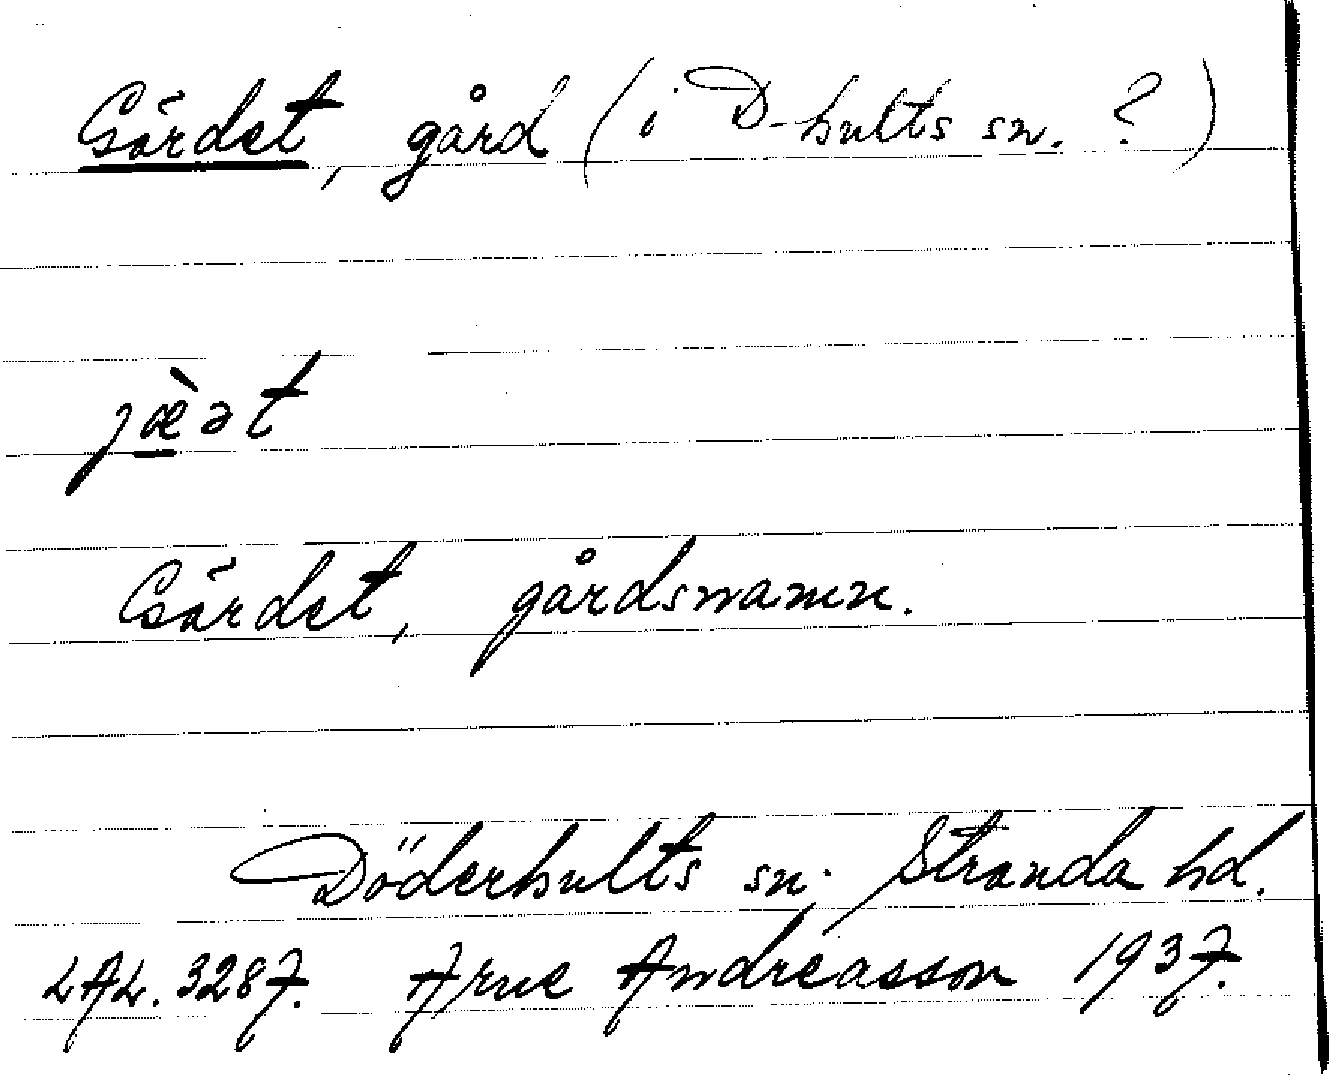 Gärdet, gård (i D-hults sn. ?)
jæ̀ət
Gärdet, gårdsnamn.
Döderhults sn. Stranda hd.
LAL. 3287. Arne Andréasson 1937.